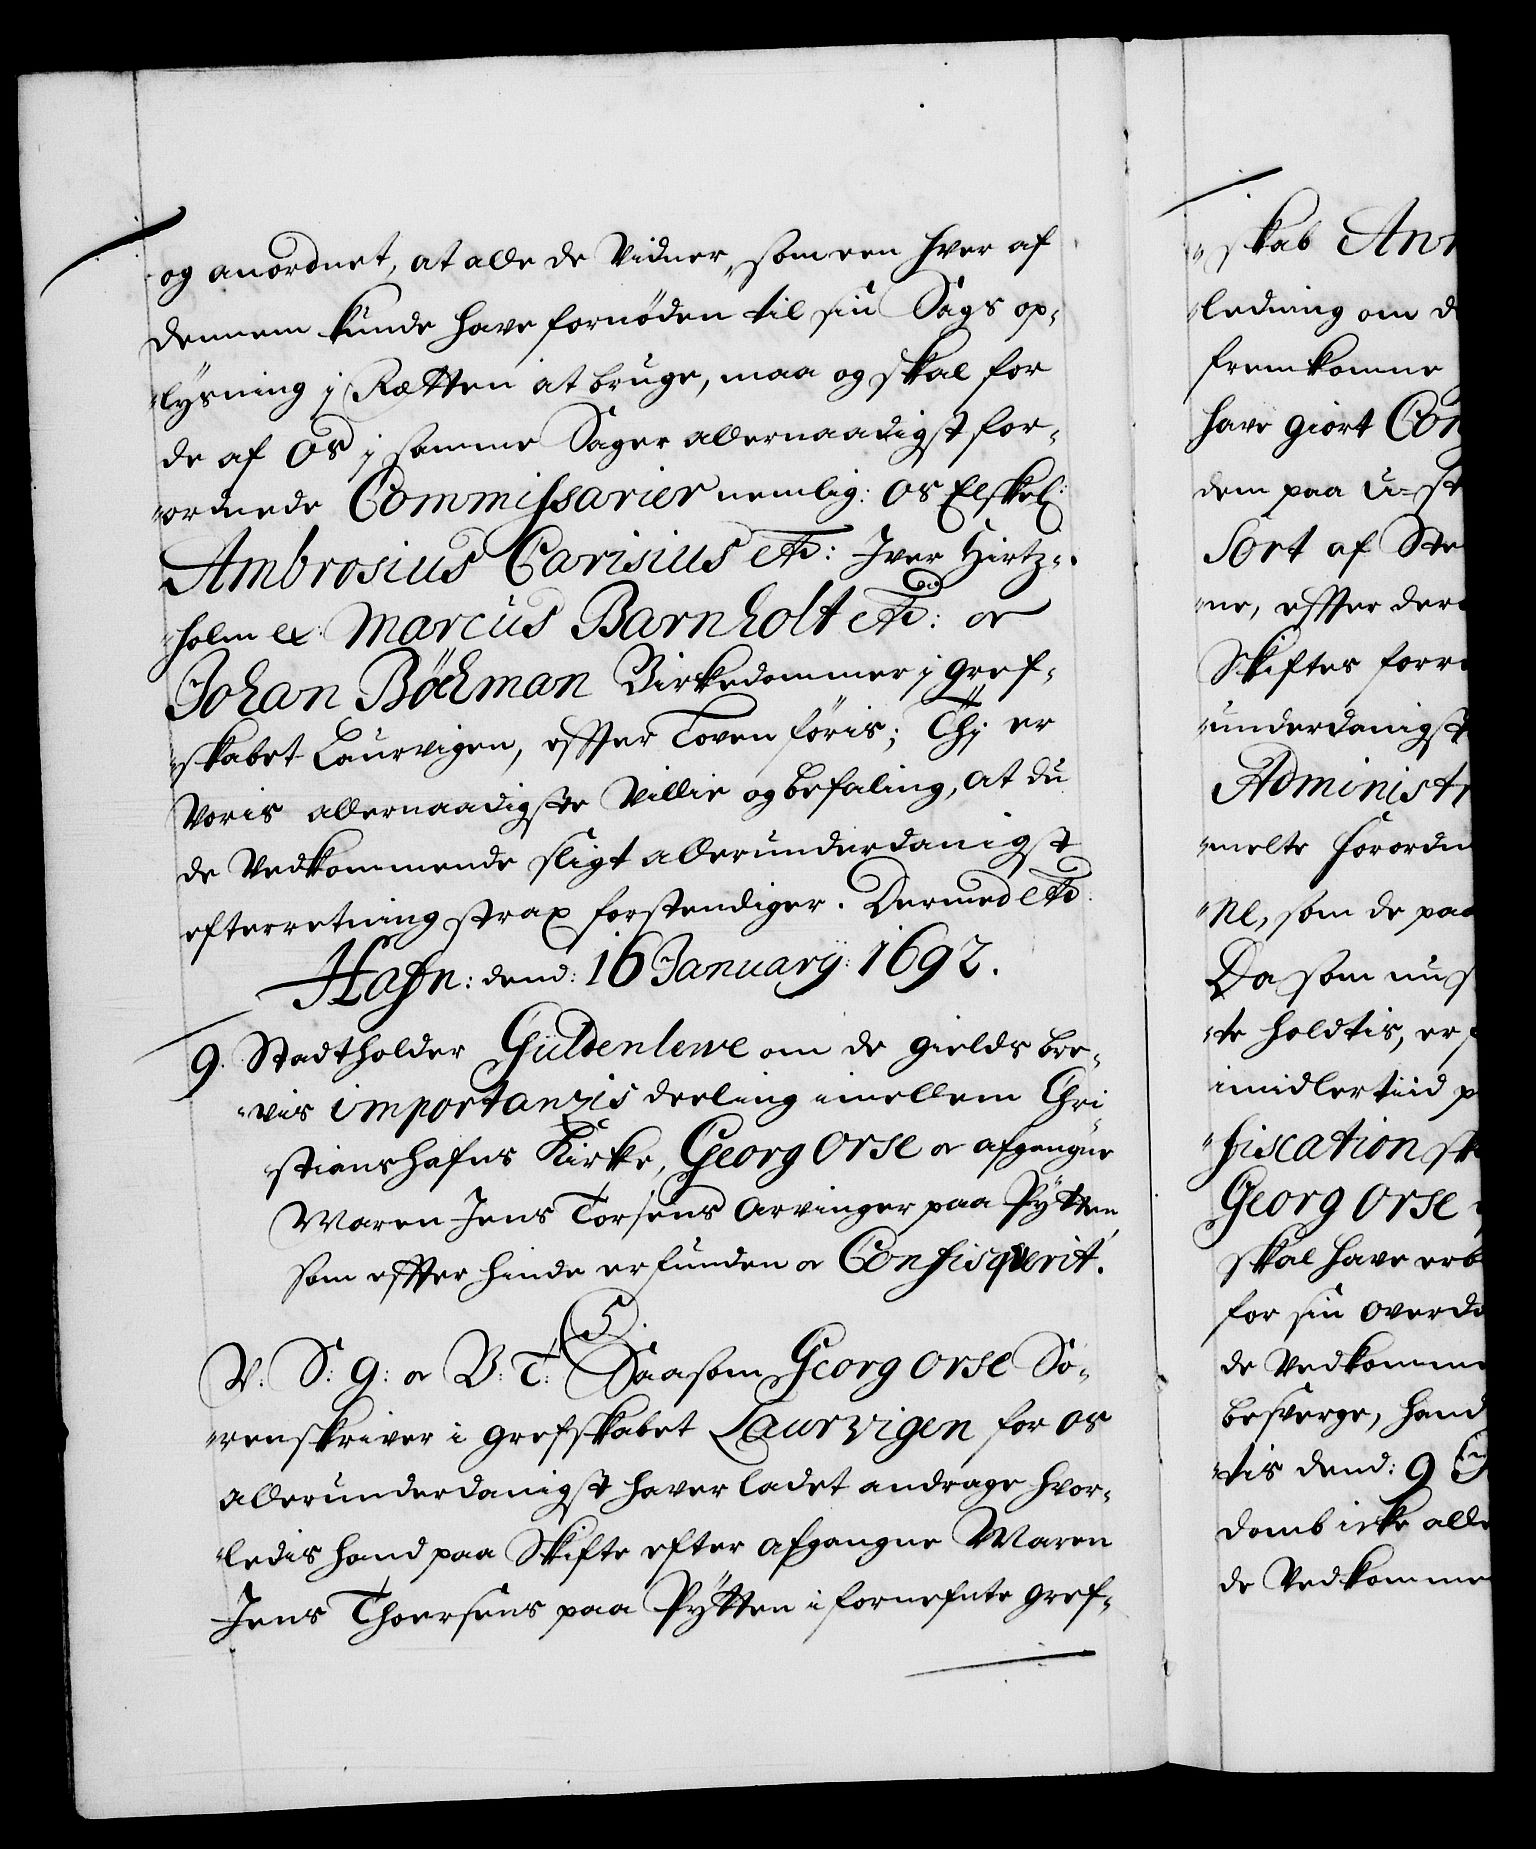 og anordnet, at alle de Vidner, som een hver af
dennem kunde have fornöden til sin Sags op-
lysning j Rætten at bruge, maa og skal for
de af Os j samme Sager allernaadigst for-
ordnede Commissarier nemlig: Os Elskel:
Ambrosius Carisius etc: Iver Hirtz-
holm etc: Marcus Barnholt etc: oc
Johan Böchman Birkedommer j Gref-
skabet Laurvigen, effter Loven föris; Thj er
Voris allernaadigste Villie og befaling, at du
de Vedkommende sligt allerunderdanigst
efterretning strax forstendiger. Dermed etc
Hafn: dend: 16 Januarij: 1692.
9. Stadtholder Güldenlewe om de Gields bre-
vis importanzis deeling imellem Chri
stianshafns Kirke, Georg Orse oc afgangne
Maren Jens Torsens Arvinger paa Pÿtten
som effter hinde er funden oc Confisqverit.
5.
V. S: G: oc B: T: Saasom Georg Orse So-
renskriver i Grefskabet Laurvigen for os
allerunderdanigst haver ladet andrage hvor-
ledis hand paa Skifte efter afgangne Maren
Jens Thoersens paa Pÿtten i fornefnte Gref-
skab
ledning om
fremkomne
have giort
dem paa
Sort af
ne, effter
Skiftes
underdanigst
melte
ne, som de
Da som nu
te holdtis,
imidlertiid
fiscation
Georg Orse
skal have
for sin
de
besverge, hand
tis dend: 9
domb icke
de